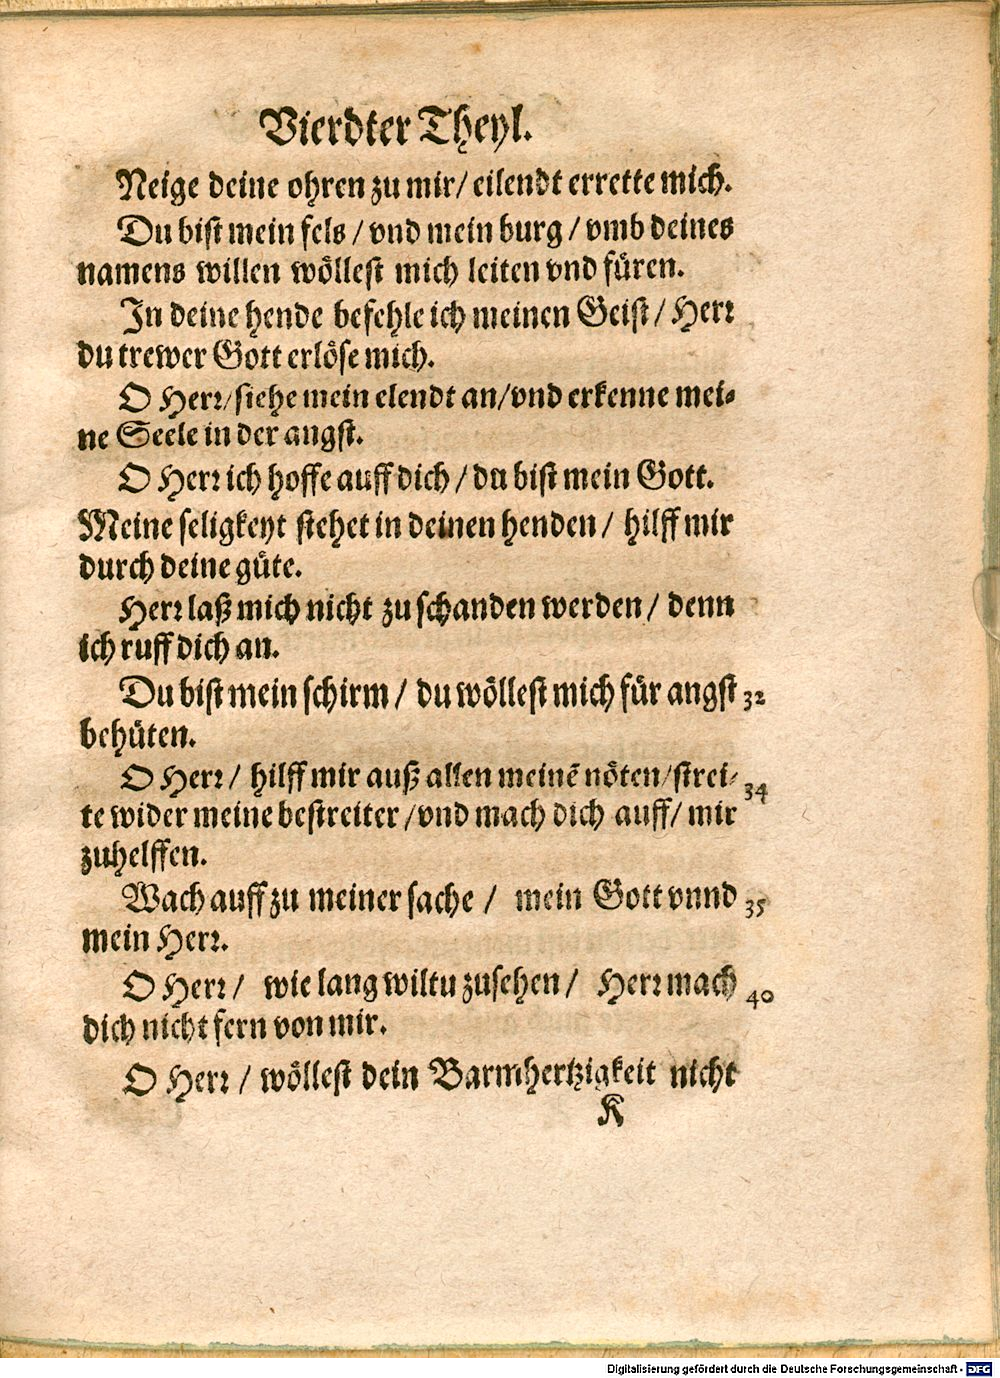 Vierdter Theyl.
Neige deine ohren zu mir/ eilendt errette mich.
Du bist mein fels / vnd mein burg / vmb deines
namens willen wöllest mich leiten vnd füren.
In deine hende befehle ich meinen Geist / Herr
du trewer Gott erlöse mich.
O Herr/siehe mein elendt an/vnd erkenne mei-
ne Seele in der angst.
O Herr ich hoffe auff dich / du bist mein Gott.
Meine seligkeyt stehet in deinen henden / hilff mir
durch deine güte.
Herr laß mich nicht zu schanden werden / denn
ich ruff dich an.
Du bist mein schirm / du wöllest mich für angst 32
behüten.
O Herr / hilff mir auß allen meinē nöten/strei- 34
te wider meine bestreiter /vnd mach dich auff/ mir
zuhelffen.
Wach auff zu meiner sache / mein Gott vnnd 35
mein Herr.
O Herr / wie lang wiltu zusehen / Herr mach 40
dich nicht fern von mir.
O Herr / wöllest dein Barmhertzigkeit nicht
K
Digitalisierung gefördert durch die Deutsche Forschungsgemeinschaft - DFG